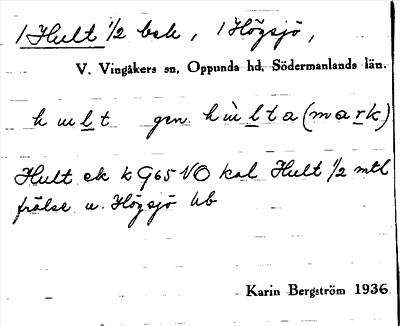 1 Hult 1/2 bsk, 1 Högsjö,
V. Vingåkers sn, Oppunda hd, Södermanlands län.
hult gen. hùlta(mark)
Hult ek k G65 NO kal Hult 1/2 mtl
frälse u. Högsjö hb
Karin Bergström 1936